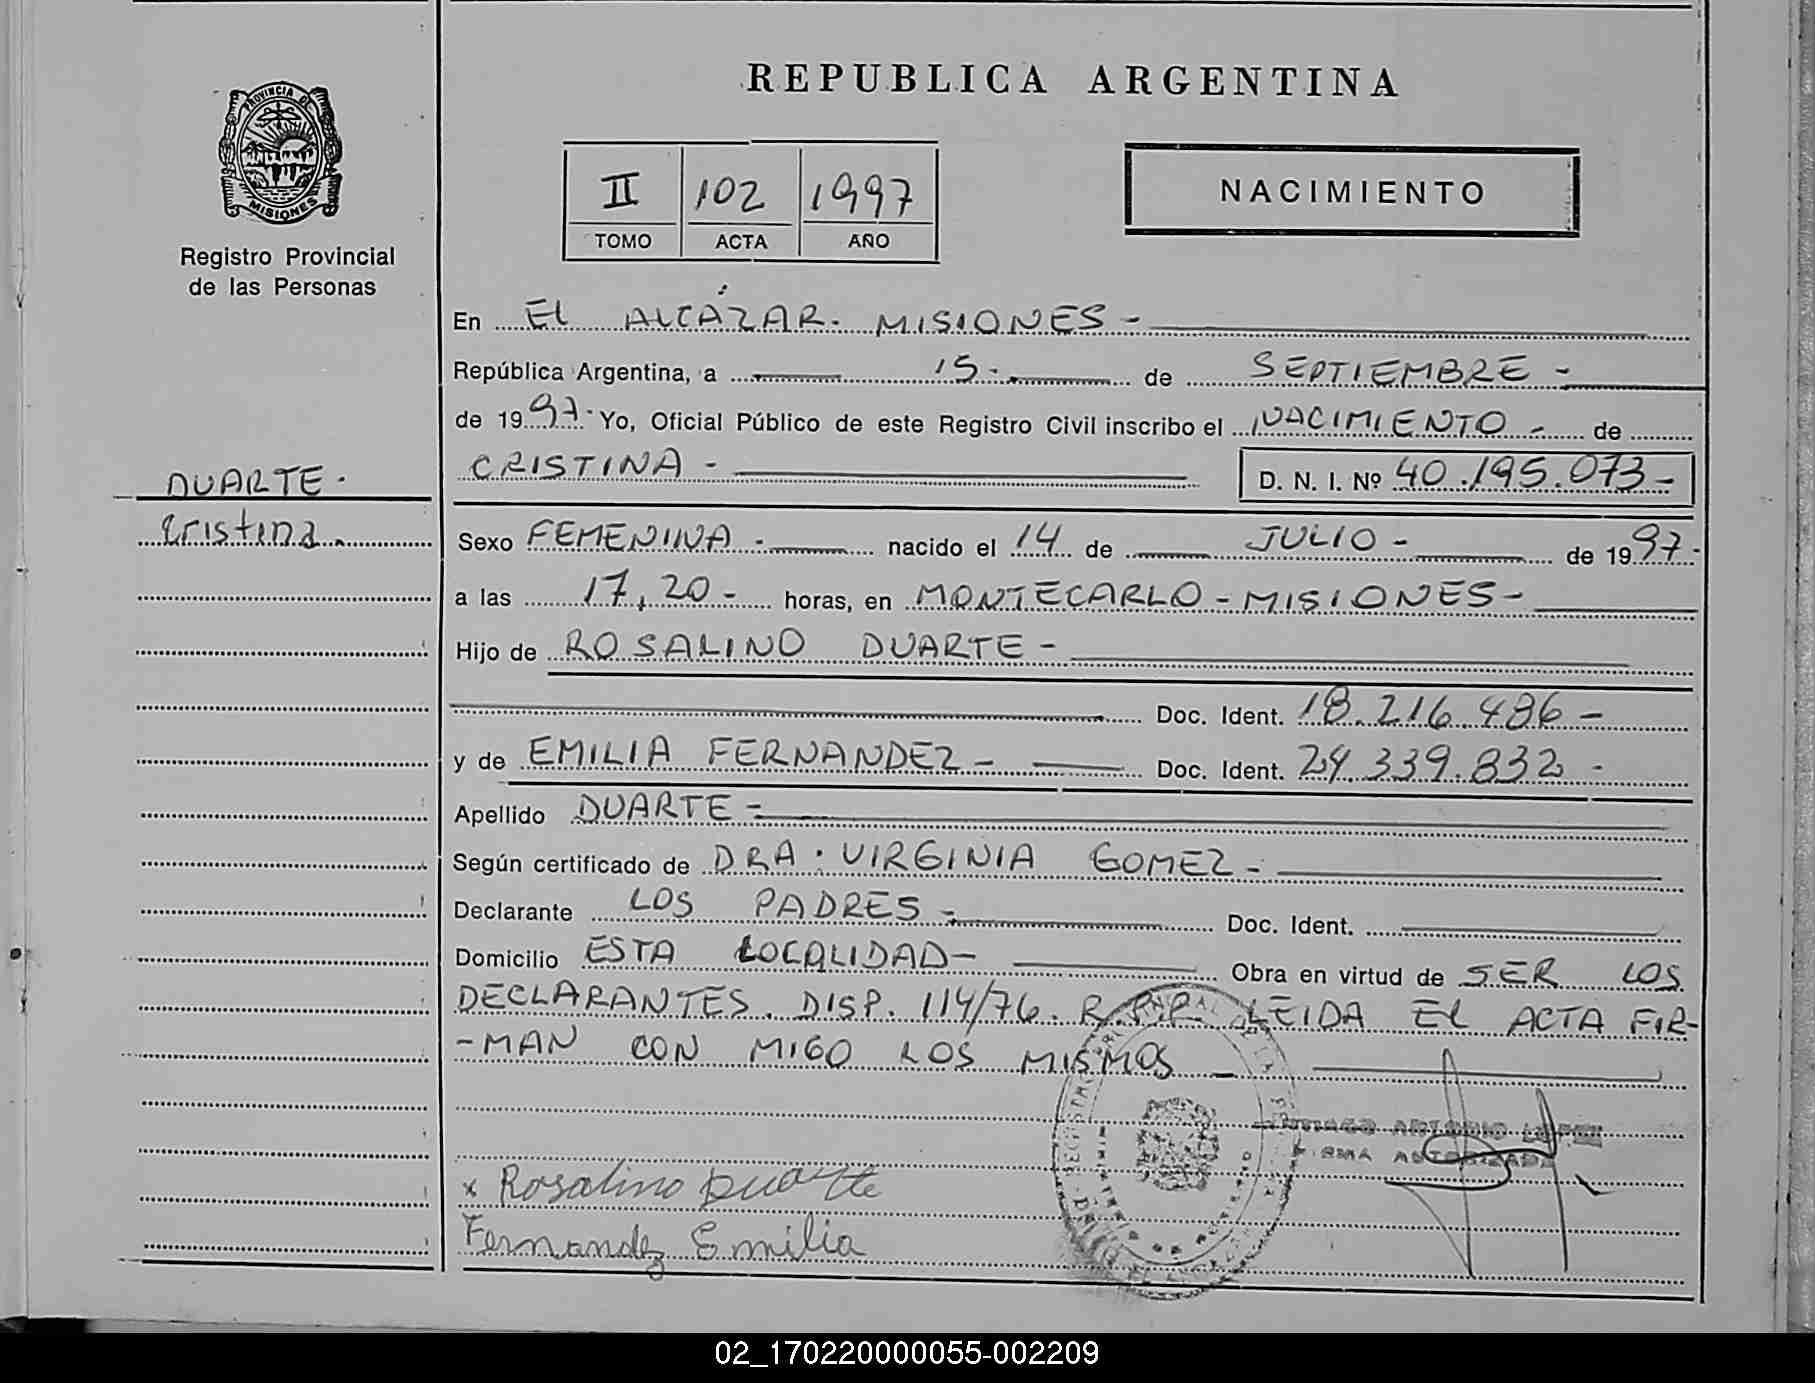 REPUBLICA ARGENTINA
PROVINCIA DE
MISIONES
Registro Provincial
de las Personas
II 102 1997
TOMO ACTA AÑO
NACIMIENTO
En EL ALCÁZAR. MISIONES -
República Argentina, a 15. de SEPTIEMBRE -
de 1997. Yo, Oficial Público de este Registro Civil inscribo el NACIMIENTO - de
CRISTINA - D. N. I. Nº 40.195.073-
DUARTE.
Cristina.
Sexo FEMENINA - nacido el 14 de JULIO - de 1997-
a las 17,20- horas, en MONTECARLO - MISIONES -
Hijo de ROSALINO DUARTE -
Doc. Ident. 18.216.486 -
y de EMILIA FERNANDEZ - Doc. Ident. 24.339.832 -
Apellido DUARTE -
Según certificado de DRA. VIRGINIA GOMEZ -
Declarante LOS PADRES - Doc. Ident.
Domicilio ESTA LOCALIDAD - Obra en virtud de SER LOS
DECLARANTES. DISP. 114/76. R.P.P. LEIDA EL ACTA FIR-
-MAN CON MIGO LOS MISMOS -
x Rosalino Duarte
Fernandez Emilia
02_170220000055-002209